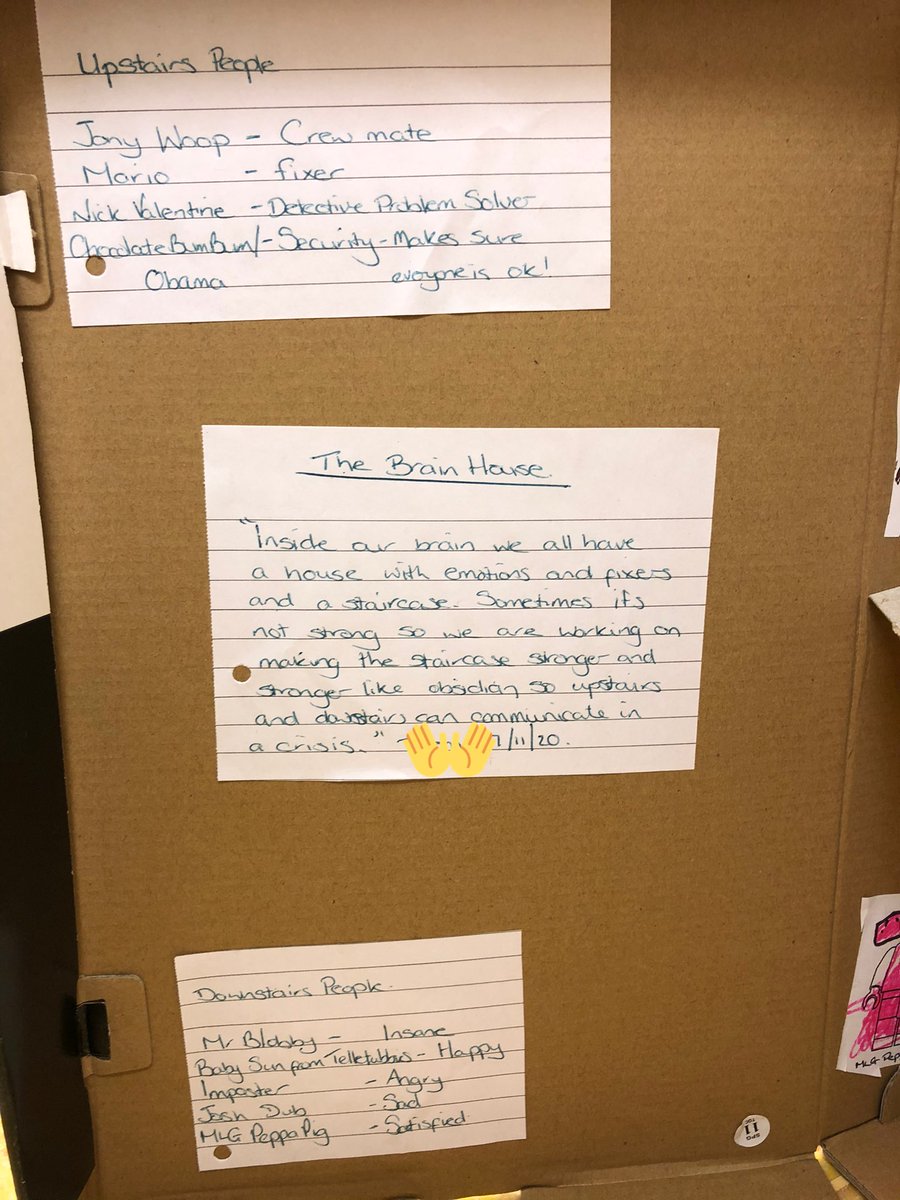 Upstairs People
Jony Woop - Crew mate
Mario - fixer
Nick Valentine - Detective Problem Solver
Chocolate BumBum/ - Security - Makes sure
Obama everyone is ok!
The Brain House.
"Inside our brain we all have
a house with emotions and fixers
and a staircase. Sometimes it's
not strong so we are working on
making the staircase stronger and
stronger like obsidian so upstairs
and downstairs can communicate in
a crisis." /11/20.
Downstairs People.
Mr Blobby - Insane
Baby Sun from Telletubbies - Happy
Imposter - Angry
Josh Dub - Sad
MLG Peppa Pig - Satisfied
MLG Pep
SPG
11